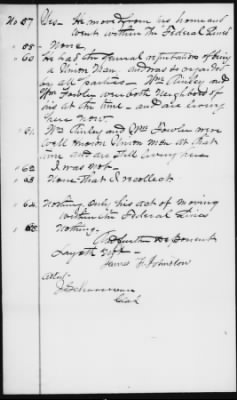 No 57 Yes - He moved from his home and
went within the Federal lines
" 58 - None.
" 60 He had the general reputation of being
a Union Man - and was so regarded
by all parties - Wm Ainley and
Wm Fowler were both neighbors of
his at the time - and are living
here now.
" 61. Wm Ainley and Wm Fowler were
well known Union men at that
time and are still living here
" 62 I was not -
" 63 None that I recollect
" 64. Nothing only his act of moving
within the Federal Lines
" Nothing.
And further Deponent
Sayeth not -
James H. Johnston
Attest
Clerk